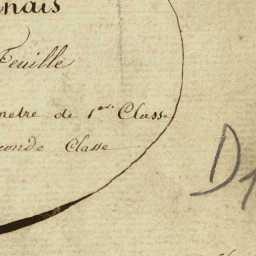 nais
Feuille
metre de 1ere Classe
conde Classe
D1